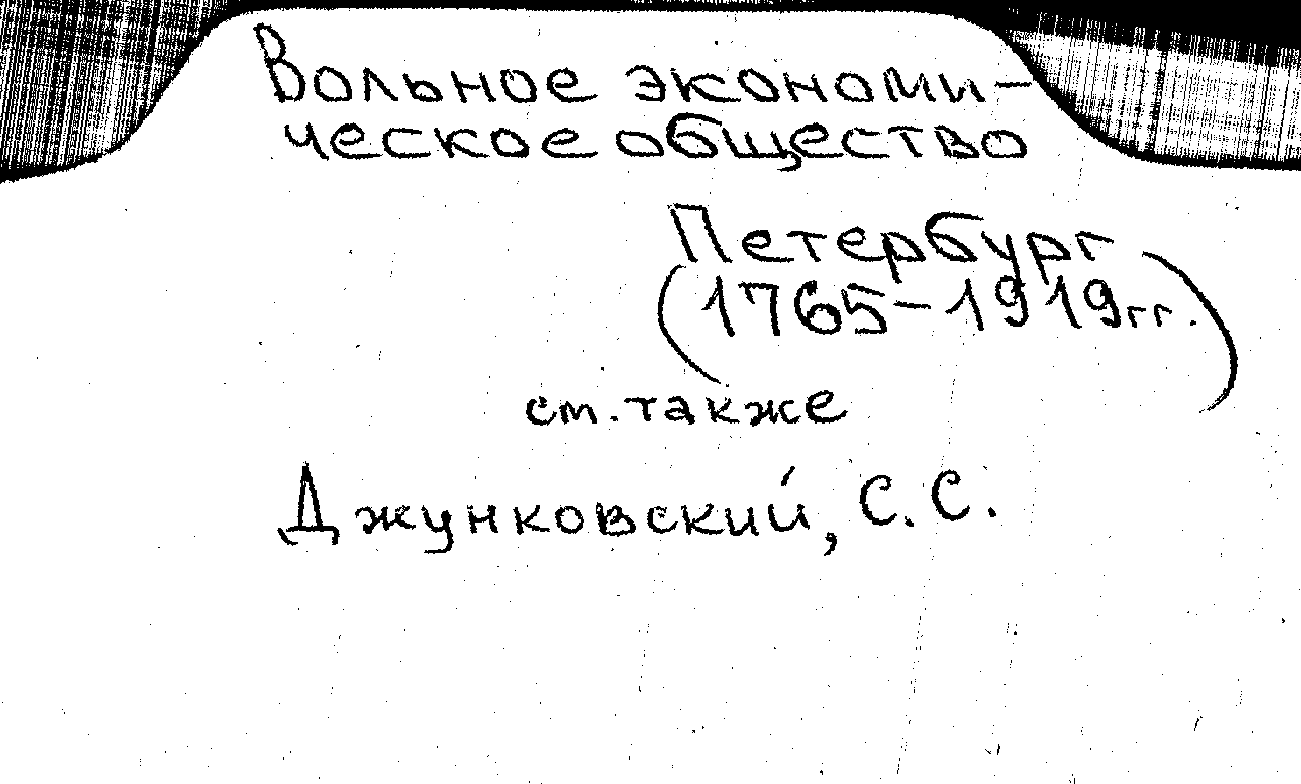 Вольное экономи-
ческое общество
Петербург
(1765-1919гг.)
см. также
Джунковский, С. С.